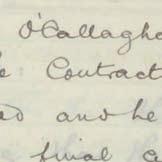 O'Callagho
Contract
and he
final